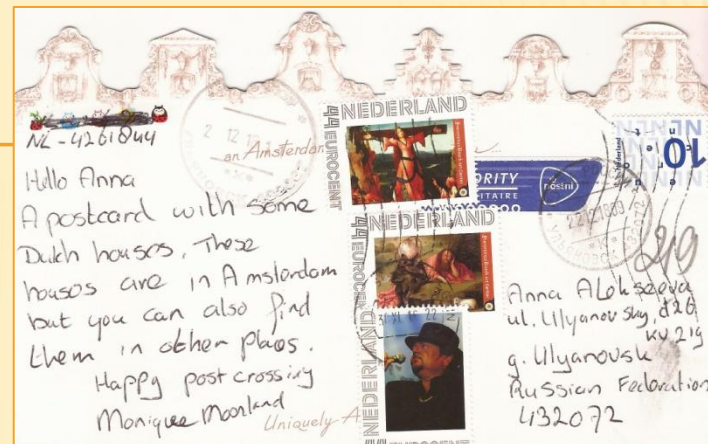 NL-4261844
Hello Anna
A postcard with some
Dutch houses. These
houses are in Amsterdam
but you can also find
them in other places.
Happy postcrossing
Monique Moonland
an Amsterdam
Uniquely A
NEDERLAND
44 EUROCENT
NEDERLAND
44 EUROCENT
NEDERLAND
EUROCENT
PRIORITY
postnl
Nederland
10
Anna Alekseeva
ul. Ulyanovsky, d26
kv. 219
g. Ulyanovsk
Russian Federation
432072
219